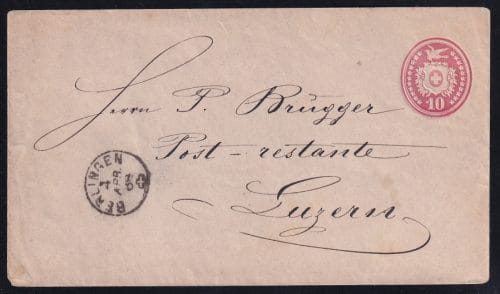 10
Herrn P. Brügger
Post-restante
Luzern.
BERLINGEN
4
APR.